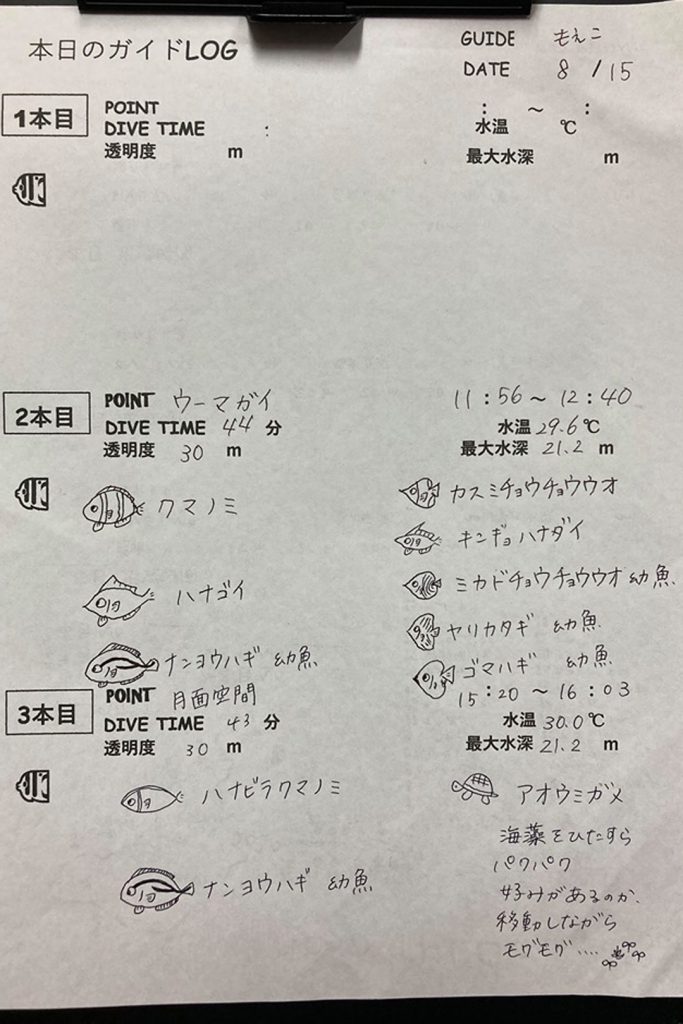 本日のガイドLOG
GUIDE もえこ
DATE 8 / 15
1本目
POINT : ~ :
DIVE TIME : 水温 ℃
透明度 m 最大水深 m
2本目
POINT ウーマガイ 11:56~12:40
DIVE TIME 44 分 水温 29.6℃
透明度 30 m 最大水深 21.2 m
クマノミ
ハナゴイ
ナンヨウハギ 幼魚
カスミチョウチョウウオ
キンギョハナダイ
ミカドチョウチョウウオ幼魚
ヤリカタギ 幼魚
ゴマハギ 幼魚
3本目
POINT 月面空間 15:20~16:03
DIVE TIME 43 分 水温 30.0℃
透明度 30 m 最大水深 21.2 m
ハナビラクマノミ
ナンヨウハギ 幼魚
アオウミガメ
海藻をひたすら
パクパク
好みがあるのか、
移動しながら
モグモグ....